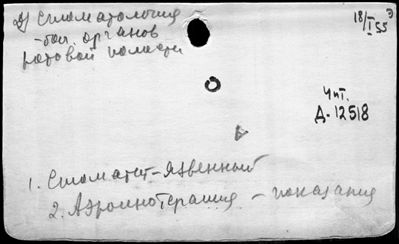 2) Стоматология -
18/I 55 э
- бол. органов
ротовой полости
Чит.
Д-12518
1. Стоматит-язвенный
2. Аэроионотерапия - показания